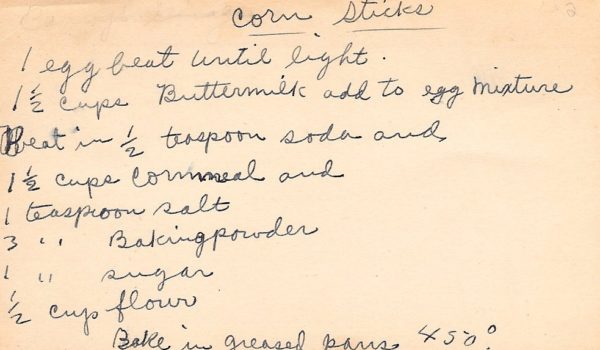 Corn Sticks
1 egg beat until light.
1 ½ cups Buttermilk add to egg mixture
Beat in ½ teaspoon soda and
1 ½ cups Cornmeal and
1 teaspoon salt
3 " Bakingpowder
1 " sugar
½ cup flour
Bake in greased pans 450°